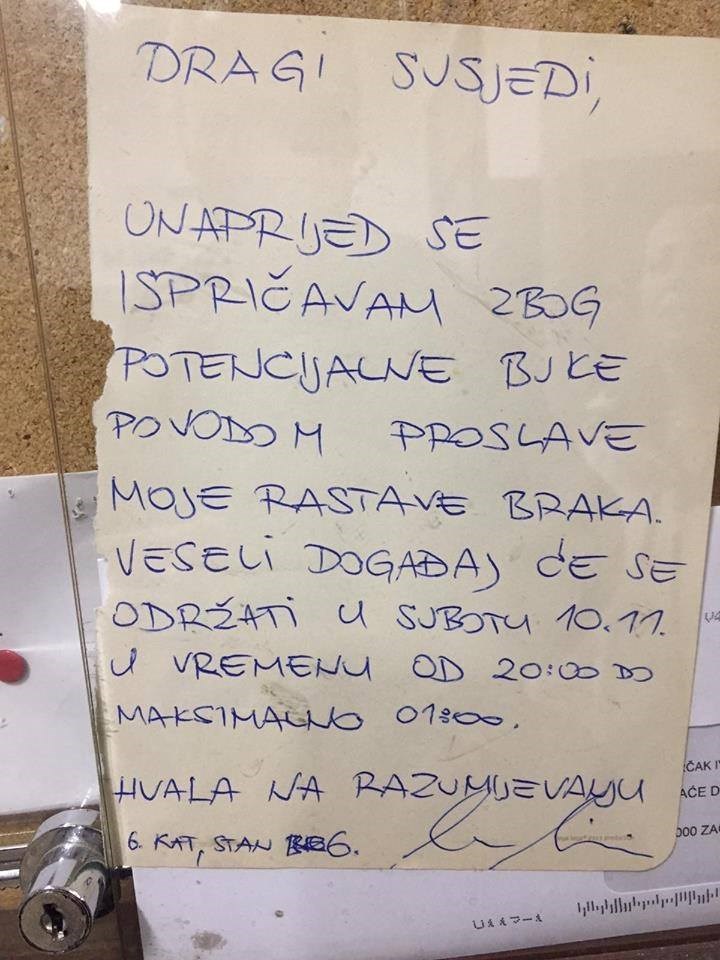 DRAGI SUSJEDI,
UNAPRIJED SE
ISPRIČAVAM ZBOG
POTENCIJALNE BUKE
POVODOM PROSLAVE
MOJE RASTAVE BRAKA.
VESELI DOGAĐAJ ĆE SE
ODRŽATI U SUBOTU 10.11.
U VREMENU OD 20:00 DO
MAKSIMALNO 01:00.
HVALA NA RAZUMIJEVANJU
6. KAT, STAN 6.